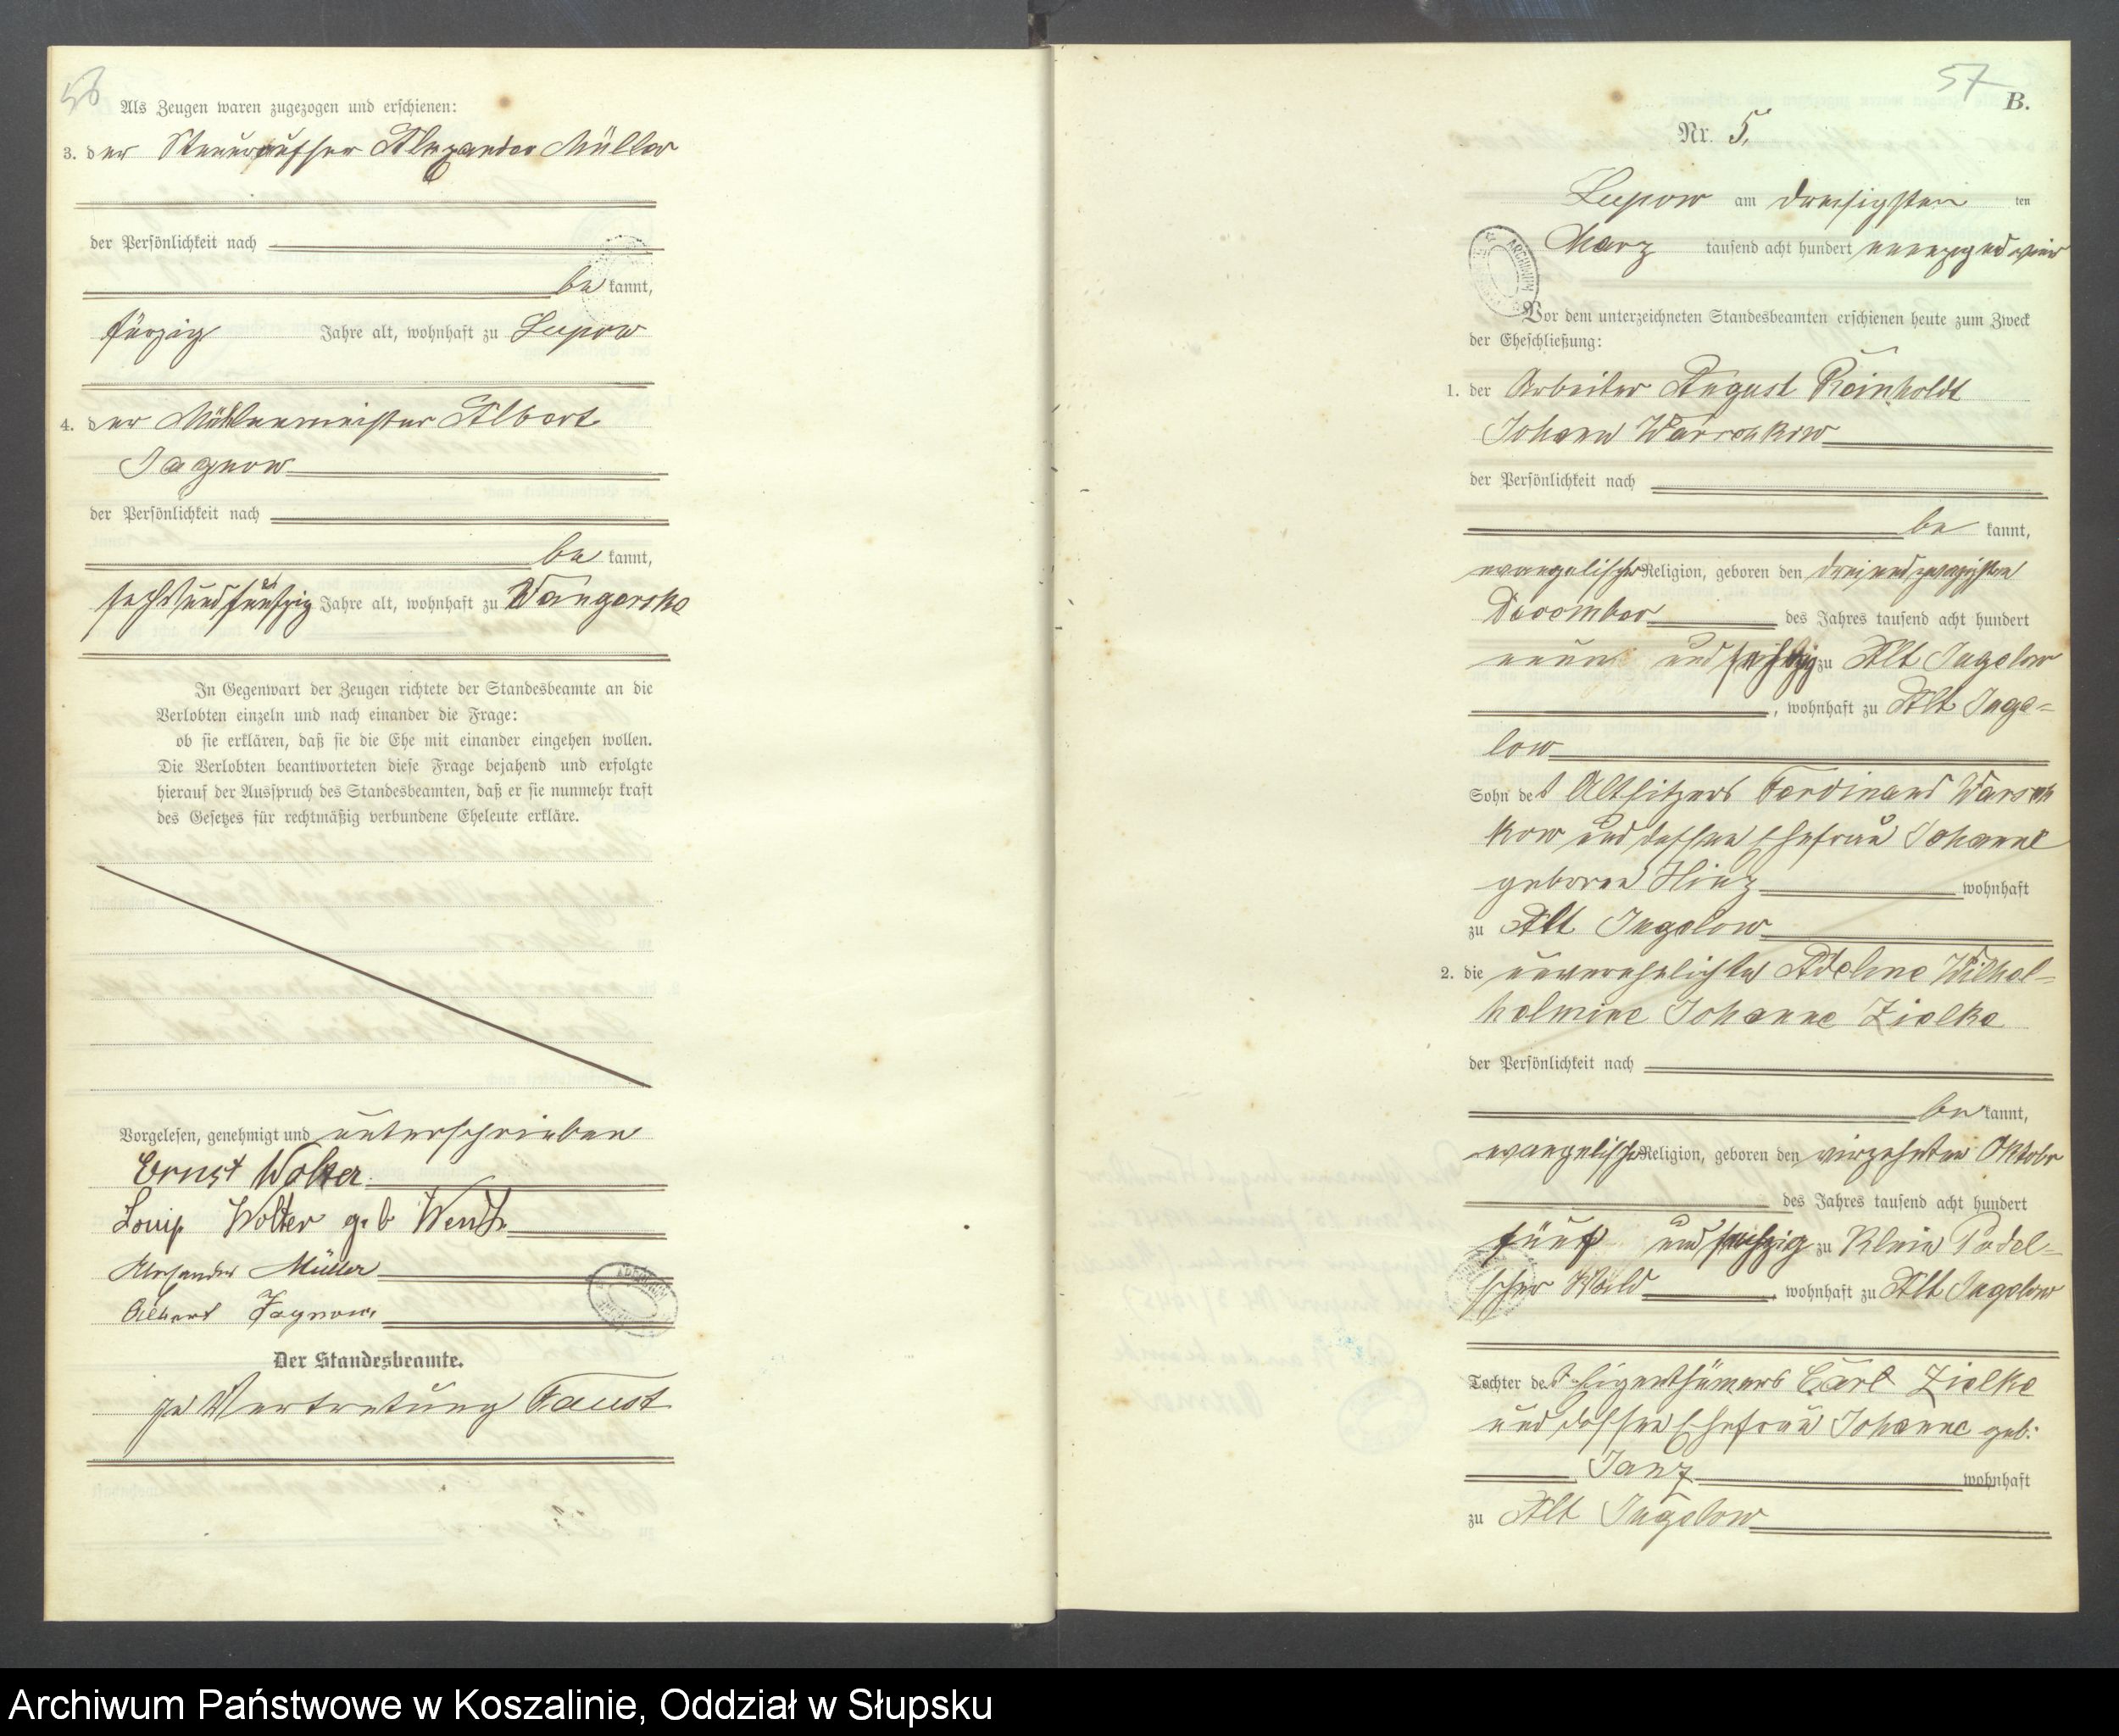 56
Als Zeugen waren zugezogen und erschienen:
3. der Steueraufseher Alexander Müller
der Persönlichkeit nach
be kannt,
Jahre alt, wohnhaft zu Lupow
4. der Mühlenmeister Albert
Jagnow
der Persönlichkeit nach
be kannt,
sechsundfünfzig Jahre alt, wohnhaft zu Wangerske
In Gegenwart der Zeugen richtete der Standesbeamte an die
Verlobten einzeln und nach einander die Frage:
ob sie erklären, daß sie die Ehe mit einander eingehen wollen.
Die Verlobten beantworteten diese Frage bejahend und erfolgte
hierauf der Ausspruch des Standesbeamten, daß er sie nunmehr kraft
des Gesetzes für rechtmäßig verbundene Eheleute erkläre.
Vorgelesen, genehmigt und unterschrieben
Ernst Wolter
Wolter geb Wendt
Alexander Müller
Albert Jagnow
Der Standesbeamte.
In Vertretung Faust
57
B.
Nr. 5.
Lupow am dreißigsten ten
März tausend acht hundert neunzig und vier
Vor dem unterzeichneten Standesbeamten erschienen heute zum Zweck
der Eheschließung:
1. der Arbeiter August Reinholdt
Johann Warschkow
der Persönlichkeit nach
be kannt,
evangelischer Religion, geboren den dreiundzwanzigsten
December des Jahres tausend acht hundert
neun und sechzig zu Alt Jugelow
, wohnhaft zu Alt Juge=
low
Sohn des Altsitzers Ferdinand Warsch
kow und dessen Ehefrau Johanne
geboren Hinz wohnhaft
zu Alt Jugelow
2. die unverehelichte Adeline Wilhel=
helmine Johanne Zielke
der Persönlichkeit nach
be kannt,
evangelischer Religion, geboren den vierzehnten Oktober
des Jahres tausend acht hundert
fünf und sechzig zu Klein Podel=
scher Wald, wohnhaft zu Alt Jugelow
Tochter des Eigenthümers Carl Zielke
und dessen Ehefrau Johanne geb:
Janz wohnhaft
zu Alt Jugelow
Archiwum Państwowe w Koszalinie, Oddział w Słupsku